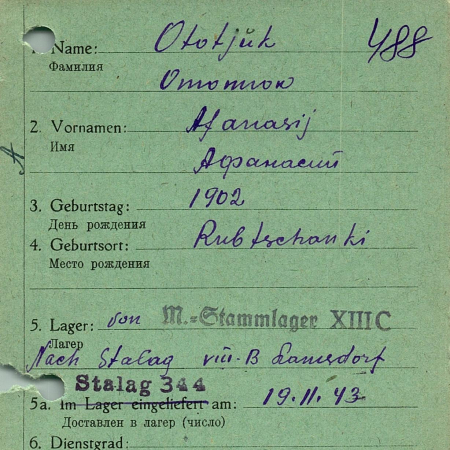 1. Name: Ototjuk 488
Фамилия
Ототюк
2. Vornamen: Afanasij
Имя
Афанасий
3. Geburtstag: 1902
День рождения
4. Geburtsort: Rubtschanki
Место рождения
5. Lager: von M.-Stammlager XIII C
Лагер
Nach Stalag VIII-B Lamsdorf
Stalag 344
5a. Im Lager eingeliefert am: 19.11.43
Доставлен в лагер (число)
6. Dienstgrad: